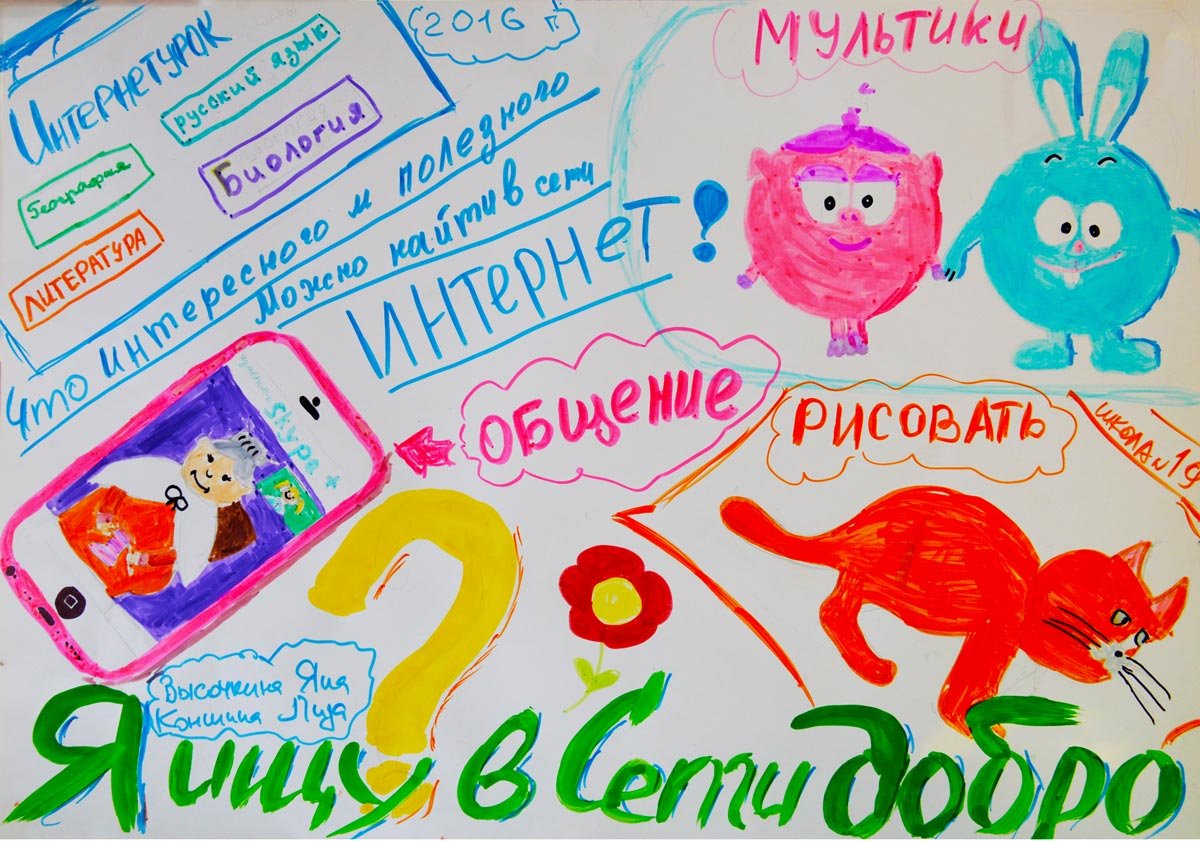 2016 г.
ИНТЕРНЕТУРОК
русский язык
Биология
География
ЛИТЕРАТУРА
Что интересного и полезного
Можно найти в сети
ИНТЕРНЕТ!
МУЛЬТИКИ
ОБЩЕНИЕ
Skype +
РИСОВАТЬ
ШКОЛА N 19
Высочкина Яна
Коншина Лиза
Я ищу в Сети добро